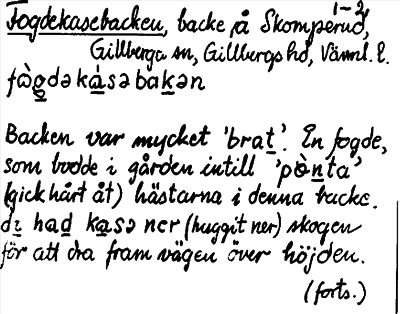 1-2
Fogdekasebacken, backe på Skomperud,
Gillberga sn, Gillbergs hd, Värml. l.
fògdəkasəbakən
Backen var mycket 'brat'. En fogde,
som bodde i gården intill 'pònta'
(gick hårt åt) hästarna i denna backe.
di had kasə ner (huggit ner) skogen
för att dra fram vägen över höjden.
(forts.)